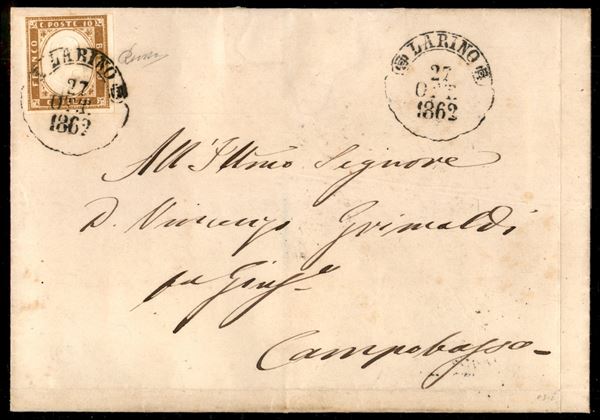 FRANCO C. POSTE 10 B
LARINO
27
OTT.
1862
LARINO
27
OTT.
1862
All'Illmo Signore
D. Vincenzo Grimaldi
fu Giuse
Campobasso